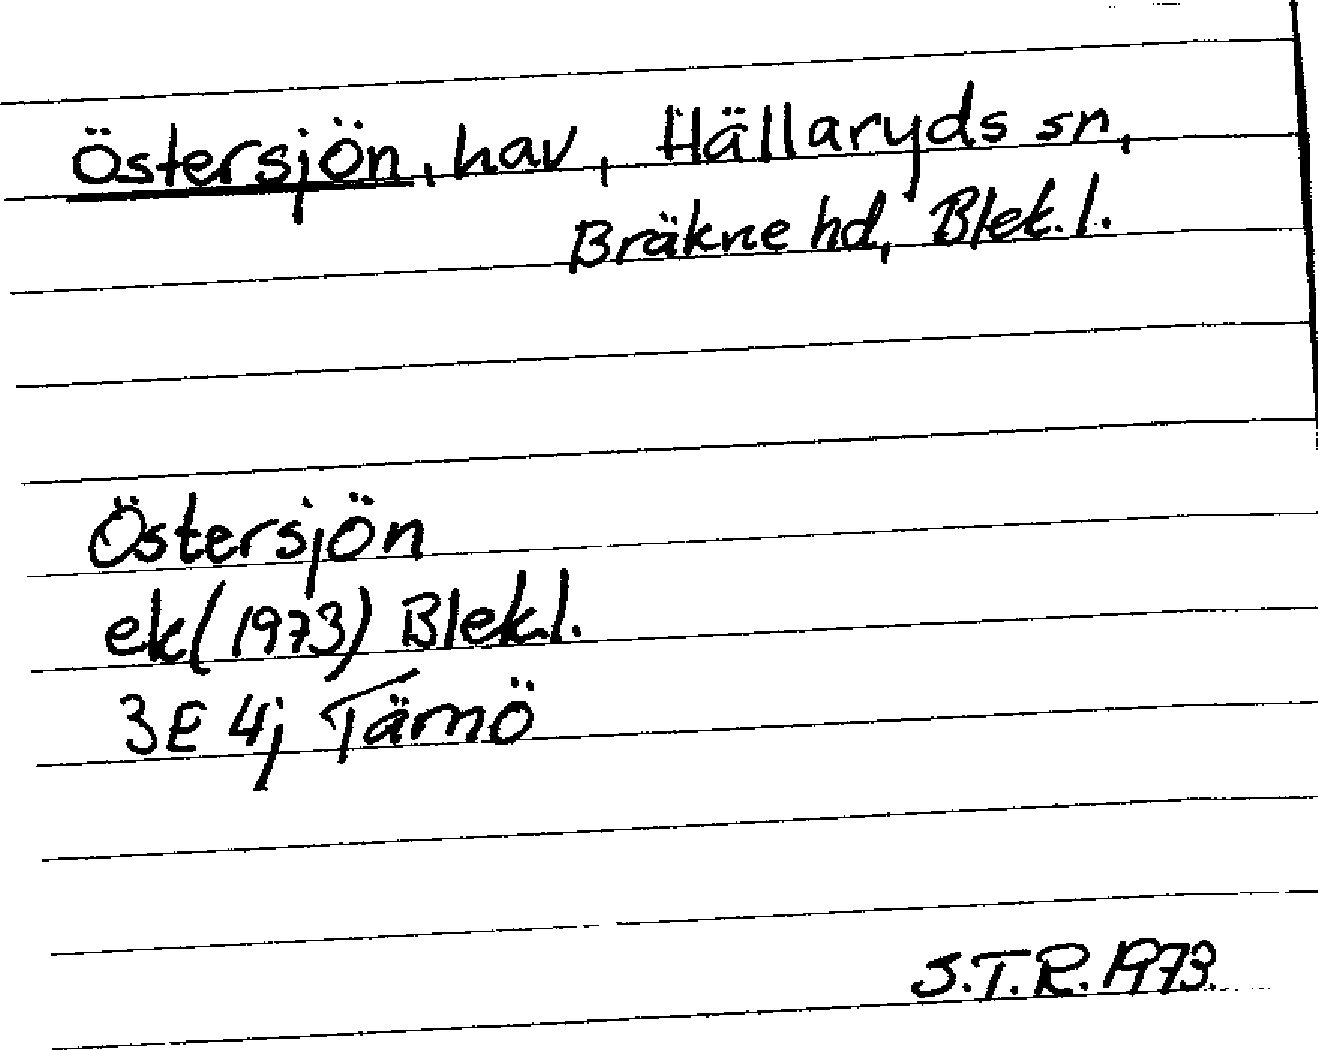 Östersjön, hav, Hällaryds sn,
Bräkne hd, Blek. l.
Östersjön
ek (1973) Blek. l.
3E 4j Tärnö
S.T.R. 1973.